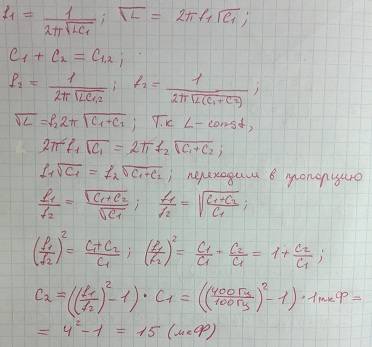 f₁ = 1/(2π√(LC₁)); √L = 2πf₁√C₁;
C₁ + C₂ = C₁,₂;
f₂ = 1/(2π√(LC₁,₂)); f₂ = 1/(2π√(L(C₁+C₂)));
√L = f₂2π√(C₁+C₂); Т.к L-const,
2πf₁√C₁ = 2πf₂√(C₁+C₂);
f₁√C₁ = f₂√(C₁+C₂); переходим в пропорцию
f₁/f₂ = √(C₁+C₂)/√C₁; f₁/f₂ = √((C₁+C₂)/C₁);
(f₁/f₂)² = (C₁+C₂)/C₁; (f₁/f₂)² = C₁/C₁ + C₂/C₁ = 1 + C₂/C₁;
C₂ = ((f₁/f₂)² - 1) · C₁ = ((400Гц/100Гц)² - 1) · 1мкФ =
= 4² - 1 = 15 (мкФ)